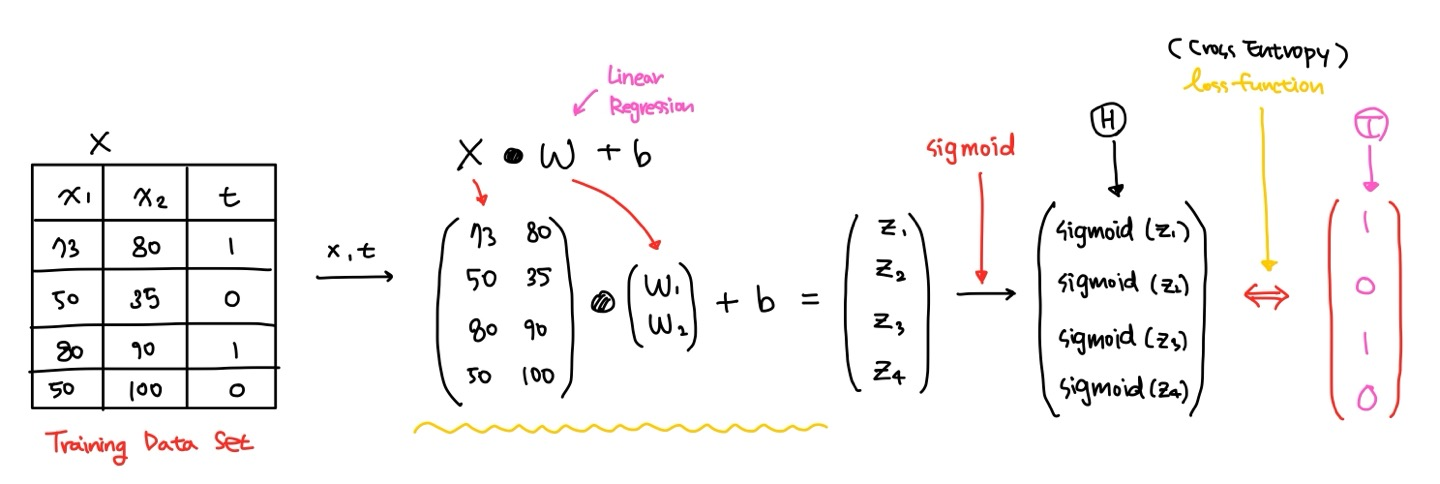 X
x₁ x₂ t
73 80 1
50 35 0
80 90 1
50 100 0
Training Data Set
x, t
Linear
Regression
X • W + b
73 80
50 35
80 90
50 100
•
W₁
W₂
+ b =
z₁
z₂
z₃
z₄
sigmoid
H
sigmoid (z₁)
sigmoid (z₂)
sigmoid (z₃)
sigmoid (z₄)
(Cross Entropy)
loss function
⇔
T
1
0
1
0